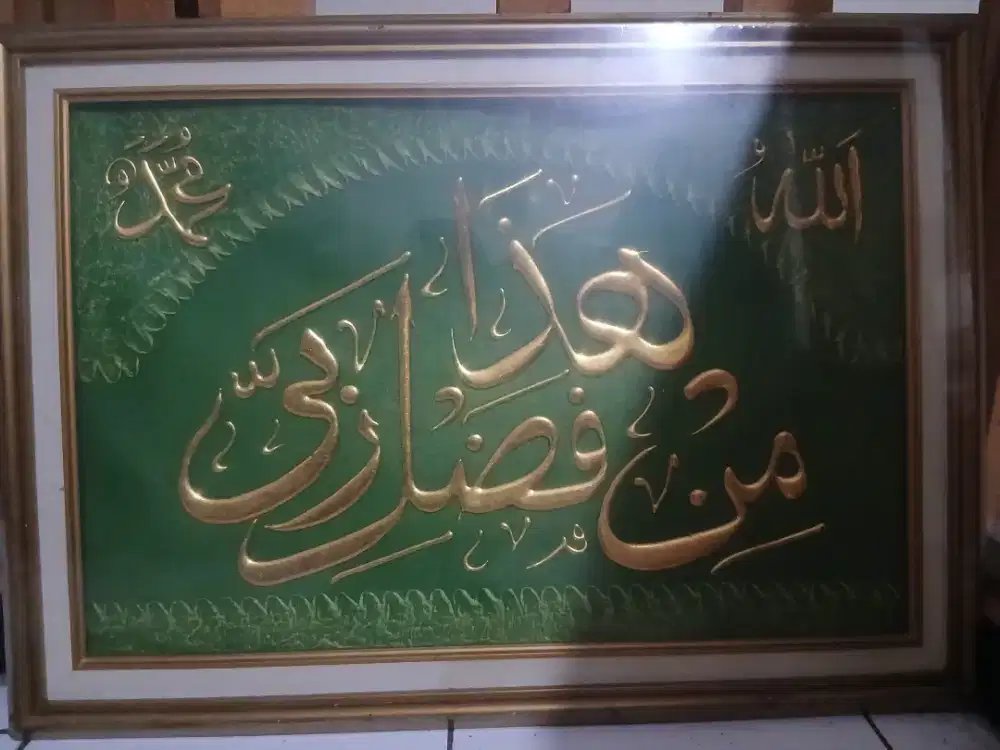 الله
محمد
هٰذَا
مِنْ فَضْلِ رَبِّي